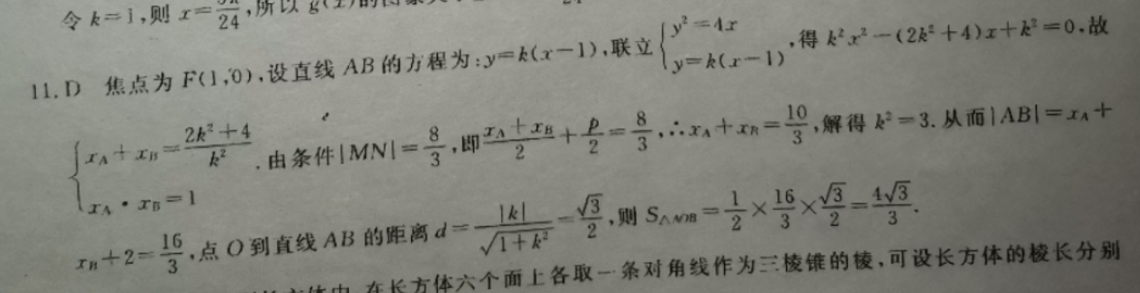 令 k=1,则 x=
24
,所以 g(x)的图象
11.D 焦点为 F(1,0),设直线 AB 的方程为:y=k(x-1),联立{y²=4x, y=k(x-1)},得 k²x²-(2k²+4)x+k²=0,故
{x_A+x_B=(2k²+4)/k², x_A·x_B=1}.由条件|MN|=8/3,即(x_A+x_B)/2+p/2=8/3,∴x_A+x_B=10/3,解得 k²=3.从而|AB|=x_A+
x_B+2=16/3,点 O 到直线 AB 的距离 d=|k|/√(1+k²)=√3/2,则 S△AOB=1/2×16/3×√3/2=4√3/3.
在长方体六个面上各取一条对角线作为三棱锥的棱,可设长方体的棱长分别